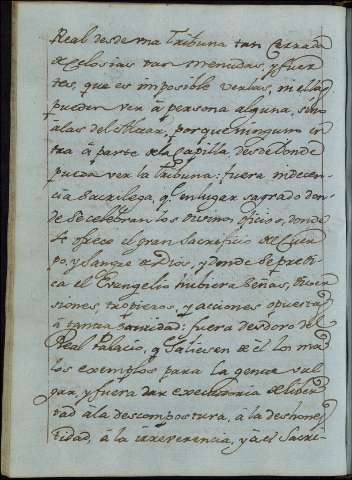 Real desde una Tribuna tan Cerrada
de Celosias tan menudas, y fuer
tes, que es imposible verlas, ni ellas
pueden ver â persona alguna, sino
âlas del Altar, porque ninguno en
tra â parte dela Capilla, desde donde
pueda ver la tribuna: fuera indecen
cia Sacrilega, q.e en lugar sagrado don
de se celebran los Divinos oficios, donde
se ofrece el gran Sacrificio del Cuer
po, y Sangre de Dios, y donde se predi
ca el Evangelio hubiera Señas, diver
siones, tropiezos, y acciones opuestas
â tanta Santidad: fuera desdoro del
Real Palacio, q saliesen de êl los ma
los exemplos para la gente vul
gar, y fuera dar executoria de liber
tad âla descompostura, â la deshones
tidad, â la irreverencia, y âel Sacri-